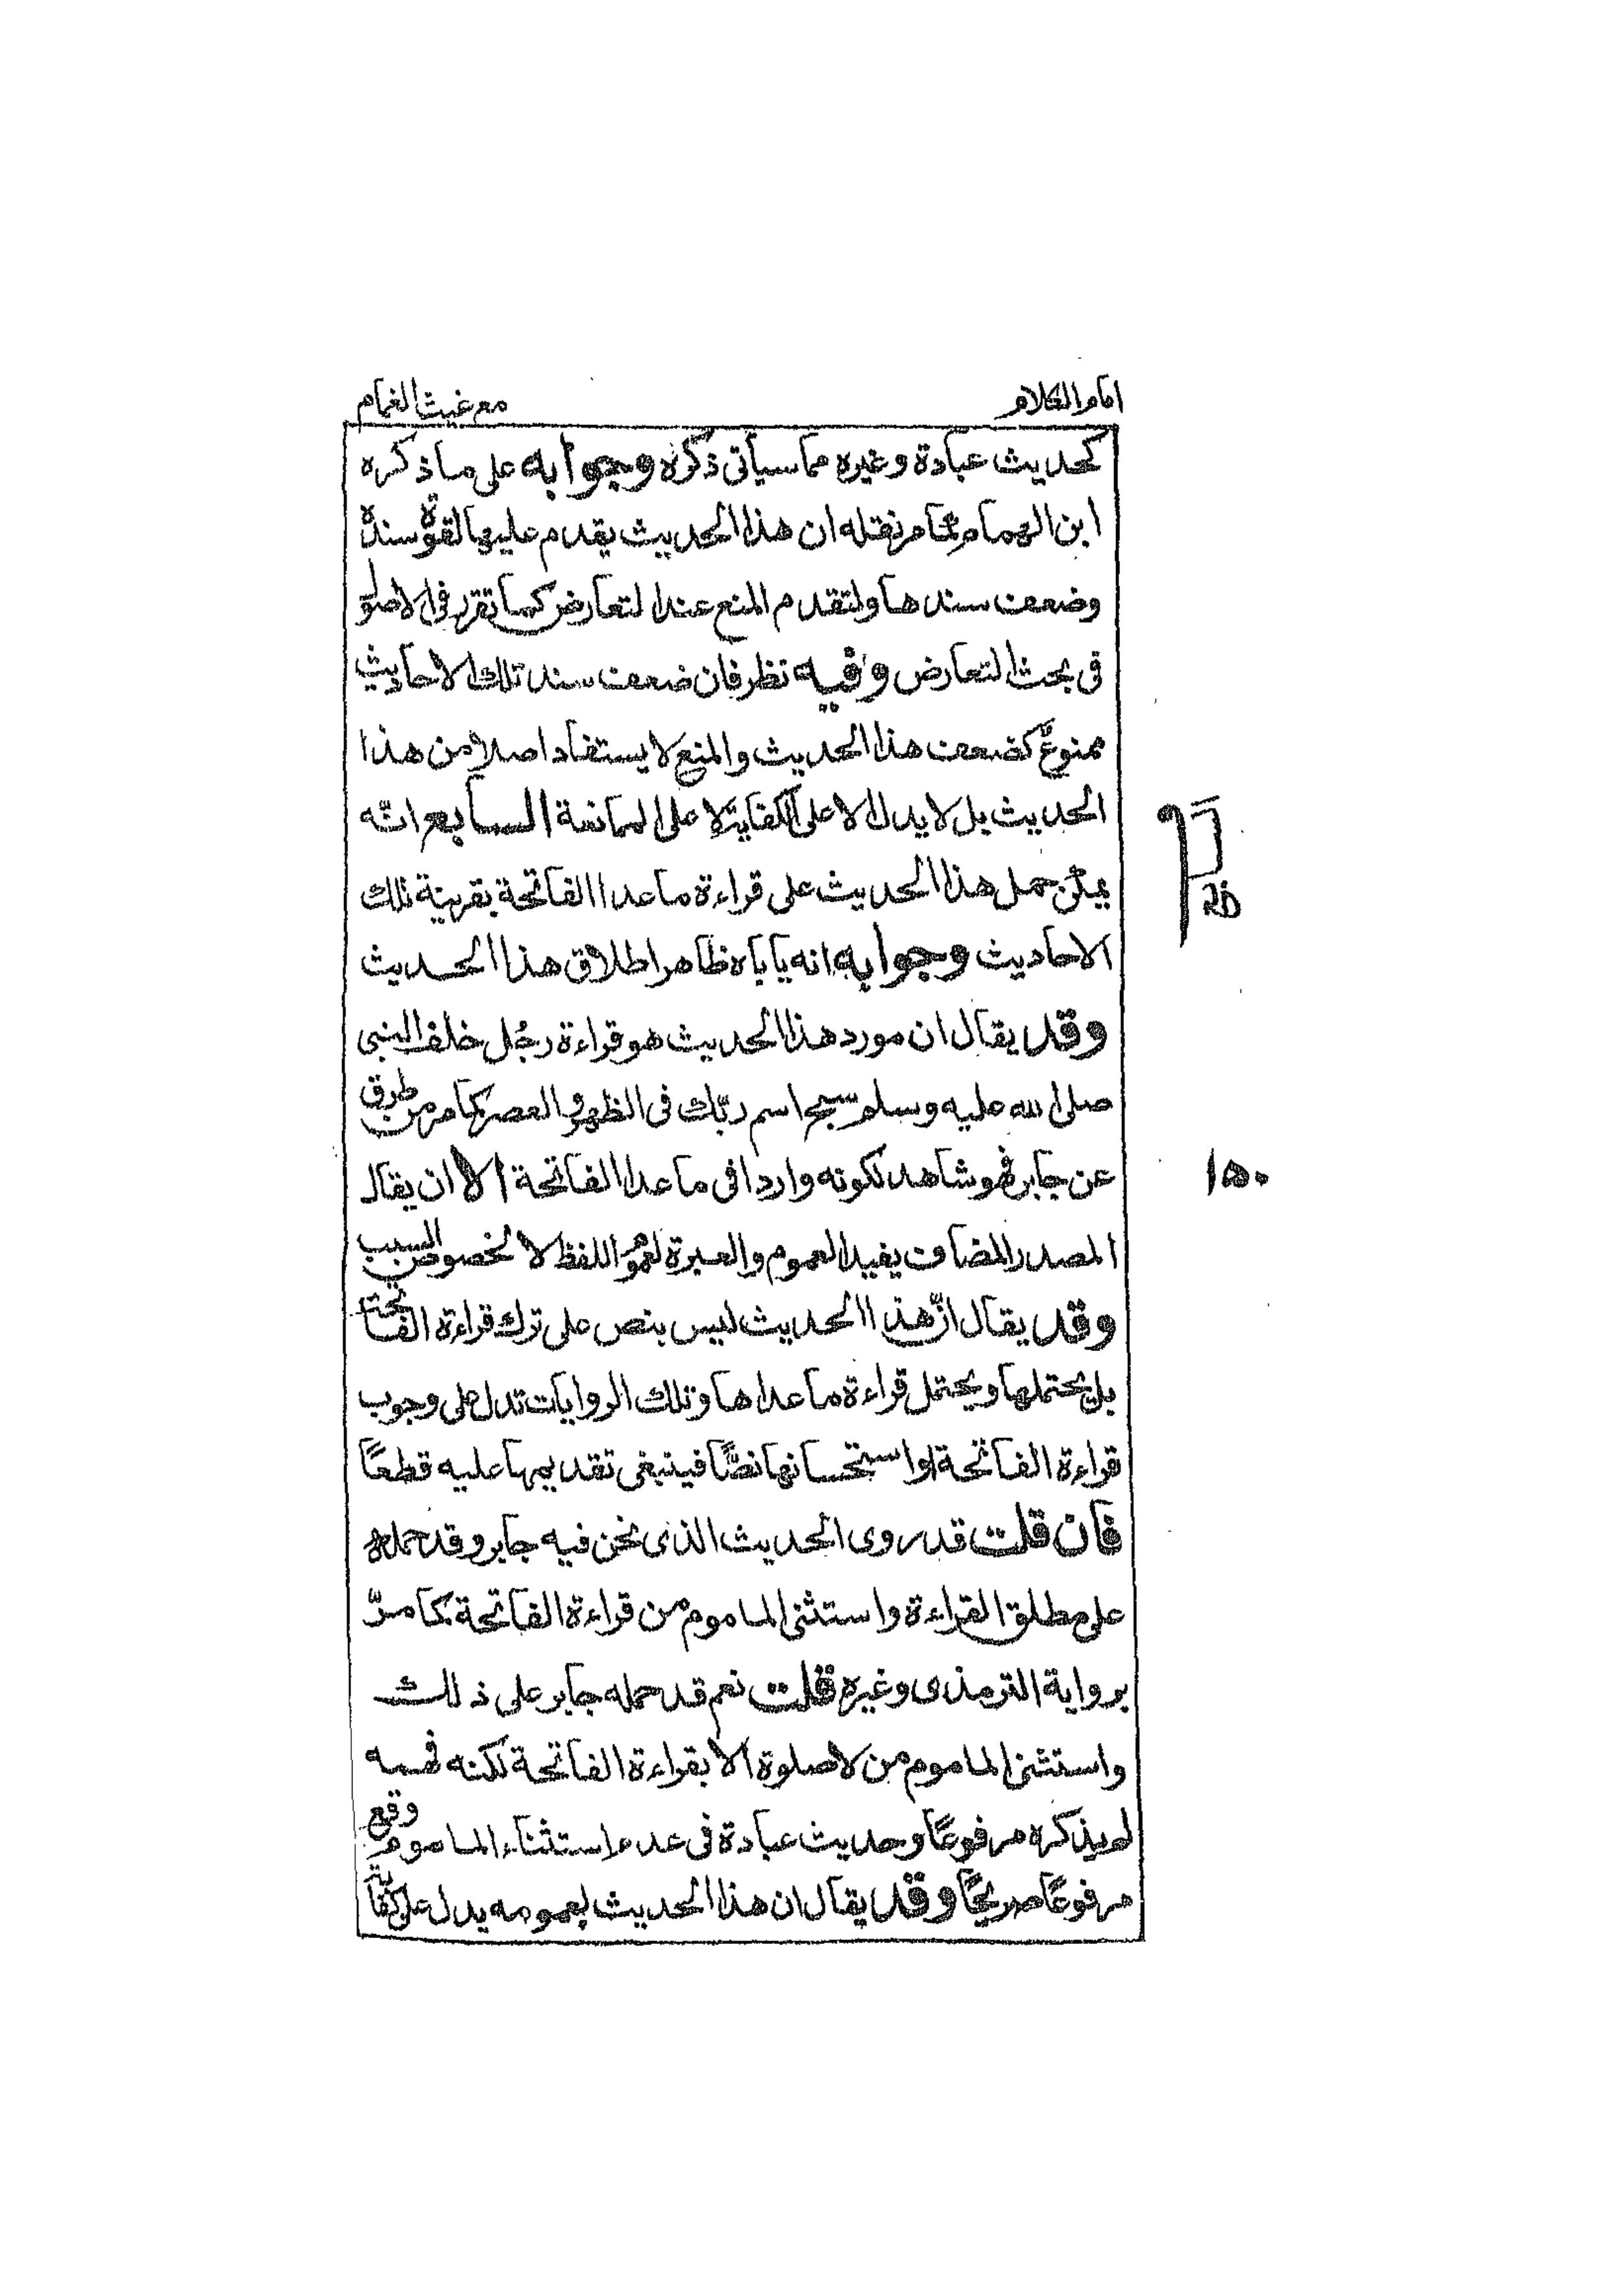 امام الكلام
مع غيث الغمام
كحديث عبادة وغيره مما سيأتى ذكره وجوابه على ما ذكره
ابن الهمام مما مر نقله ان هذا الحديث يقدم عليها لقوة سنده
وضعف سندها ولتقدم المنع عند التعارض كما تقرر فى الاصول
فى بحث التعارض وفيه نظر فان ضعف سند تلك الاحاديث
ممنوع كضعف هذا الحديث والمنع لا يستفاد اصلا من هذا
الحديث بل لا يدل الا على الكفاية لا على الممانعة السابع انّه
يمكن حمل هذا الحديث على قراءة ما عدا الفاتحة بقرينة تلك
الاحاديث وجوابه انه ياباه ظاهر اطلاق هذا الحديث
وقد يقال ان مورد هذا الحديث هو قراءة رجُل خلف النبى
صلى الله عليه وسلم سبح اسم ربّك فى الظهر والعصر كما مر من طرق
عن جابر فهو شاهد لكونه واردا فى ما عدا الفاتحة الا ان يقال
المصدر المضاف يفيد العموم والعبرة لعموم اللفظ لا لخصوص السبب
وقد يقال انّ هذا الحديث ليس بنص على ترك قراءة الفاتحة
بل يحتملها ويحتمل قراءة ما عداها وتلك الروايات تدل على وجوب
قراءة الفاتحة او استحسانها نصًّا فينبغى تقديمها عليه قطعًا
فان قلت قد روى الحديث الذى نحن فيه جابر وقد حمله
على مطلق القراءة واستثنى الماموم من قراءة الفاتحة كما مرّ
برواية الترمذى وغيره قلت نعم قد حمله جابر على ذلك
واستثنى الماموم من لا صلوة الا بقراءة الفاتحة لكنه فهمه
لم يذكره مرفوعًا وحديث عبادة فى عدم استثناء الماموم وقع
مرفوعًا صريحًا وقد يقال ان هذا الحديث بعمومه يدل على كفاية
۱۵۰